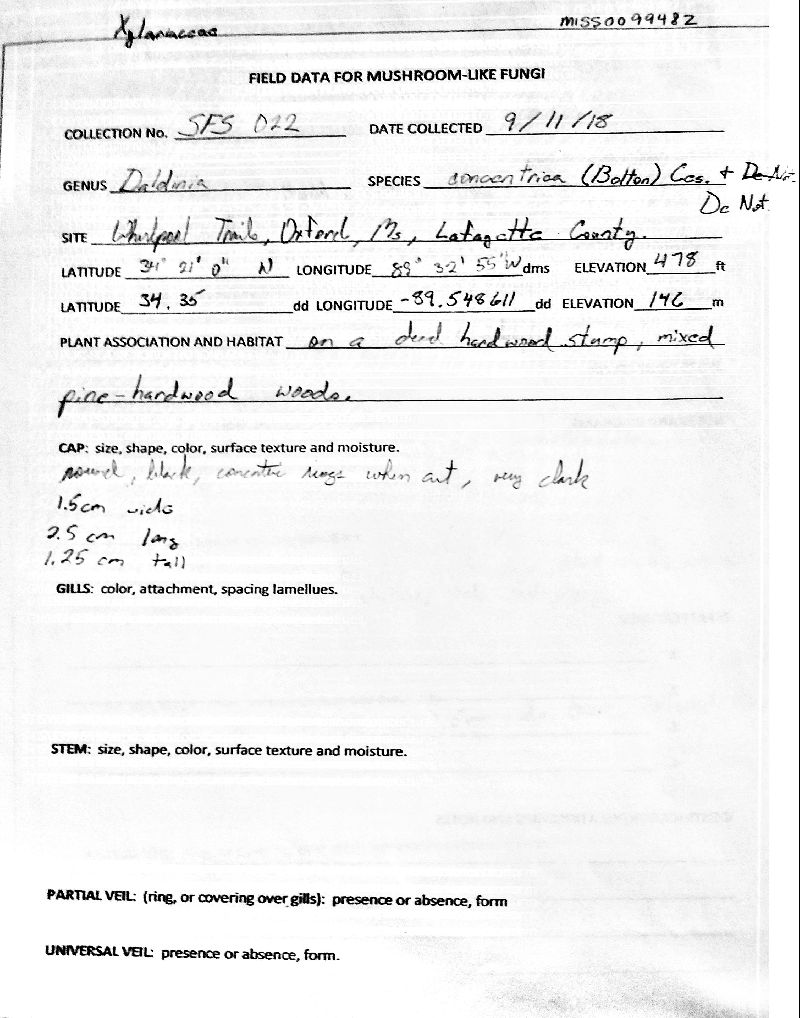 Xylariaceae MISS0099482
FIELD DATA FOR MUSHROOM-LIKE FUNGI
COLLECTION No. SFS 022 DATE COLLECTED 9/11/18
GENUS Daldinia SPECIES concentrica (Bolton) Ces. + De Not.
De Not.
SITE Whirlpool Trails, Oxford, Ms, Lafayette County.
LATITUDE 34° 21' 0" N LONGITUDE 89° 32' 55" W dms ELEVATION 478 ft
LATITUDE 34.35 dd LONGITUDE -89.548611 dd ELEVATION 146 m
PLANT ASSOCIATION AND HABITAT on a dead hardwood stump, mixed
pine-hardwood woods.
CAP: size, shape, color, surface texture and moisture.
round, black, concentric rings when cut, very dark
1.5cm wide
2.5 cm long
1.25 cm tall
GILLS: color, attachment, spacing lamellues.
STEM: size, shape, color, surface texture and moisture.
PARTIAL VEIL: (ring, or covering over gills): presence or absence, form
UNIVERSAL VEIL: presence or absence, form.